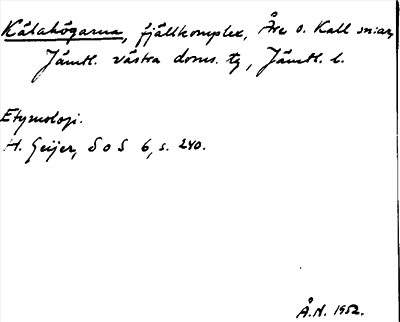 Kålahögarna, fjällkomplex, Åre o. Kall snr,
Jämtl. västra doms. tg, Jämtl. l.
Etymologi.
H. Geijer, S o S 6, s. 240.
Å.N. 1952.